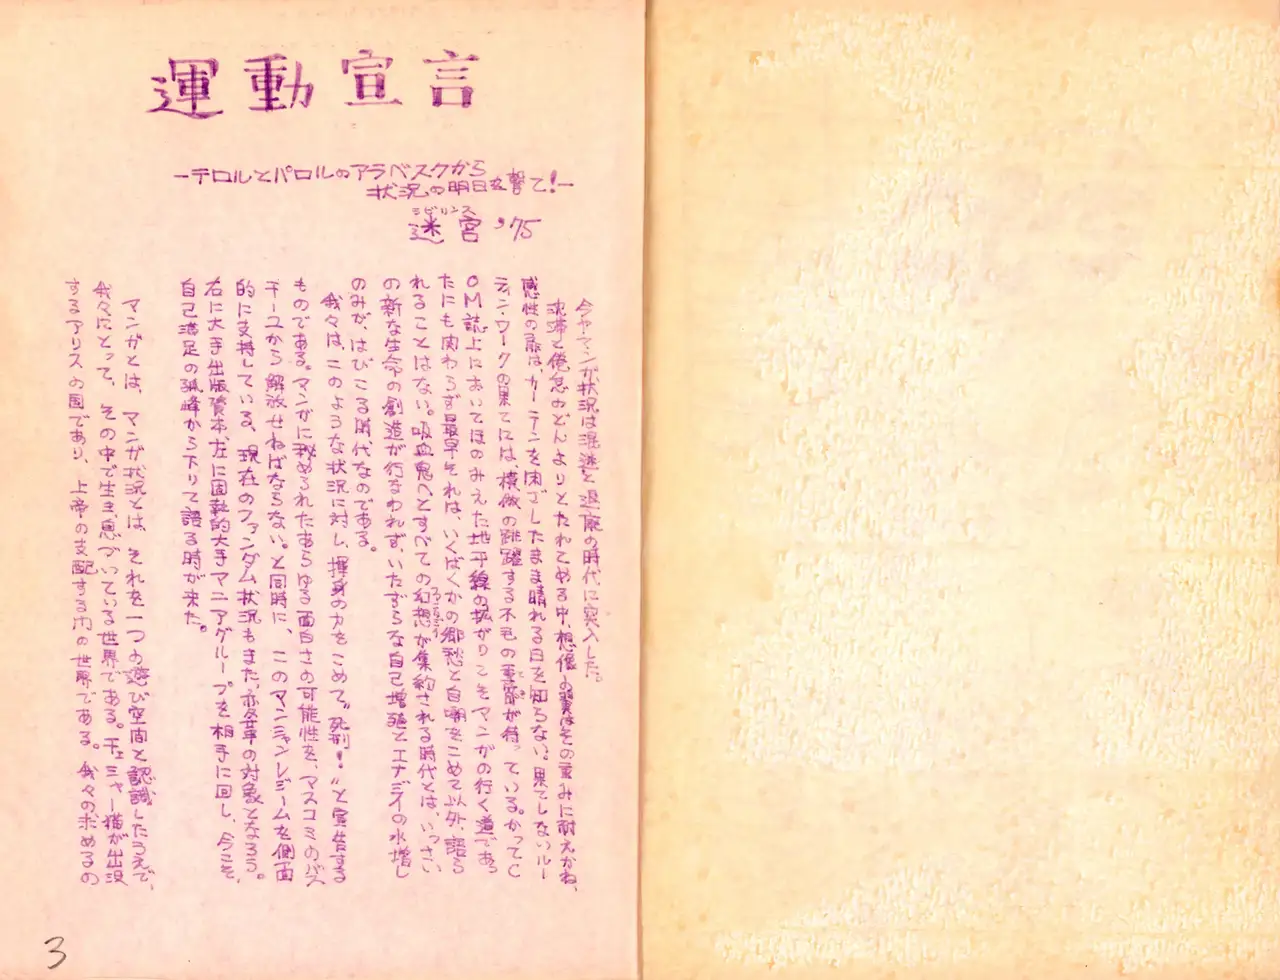 運動宣言
—テロルとパロルのアラベスクから
状況の明日を撃て!—
ラビリンス
迷宮 '75
今やマンガ状況は混迷と退廃の時代に突入した。
沈滞と倦怠のどんよりとたれこめる中、想像の翼はその重みに耐えかね、
感性の扉は、カーテンを閉ざしたまま晴れる日を知らない。果てしないルー
ティン・ワークの果てには、模倣の跳躍する不毛の
が待っている。かつてC
OM誌上においてほのみえた地平線の拡がりこそマンガの行く道であっ
たにも関わらず最早それは、いくばくかの郷愁と自嘲をこめて以外、語ら
れることはない。吸血鬼へとすべての幻想が集約される時代とは、いっさい
の新な生命の創造が行なわれず、いたずらな自己増殖とエナジイの水増し
のみが、はびこる時代なのである。
我々は、このような状況に対し、渾身の力をこめて〝死刑!〟と宣告する
ものである。マンガに秘められたあらゆる面白さの可能性を、マスコミのバス
チーユから解放せねばならない。と同時に、このマンシャンレジームを側面
的に支持している、現在のファンダム状況もまた、変革の対象となろう。
右に大手出版資本、左に固執的大手マニアグループを相手に回し、今こそ、
自己満足の孤峰から下りて語る時が来た。
マンガとは、マンガ状況とは、それを一つの遊び空間と認識したうえで、
我々にとって、その中で生き、息づいている世界である。チェシャー猫が出没
するアリスの国であり、上帝の支配する
の世界である。我々の求めるの
3